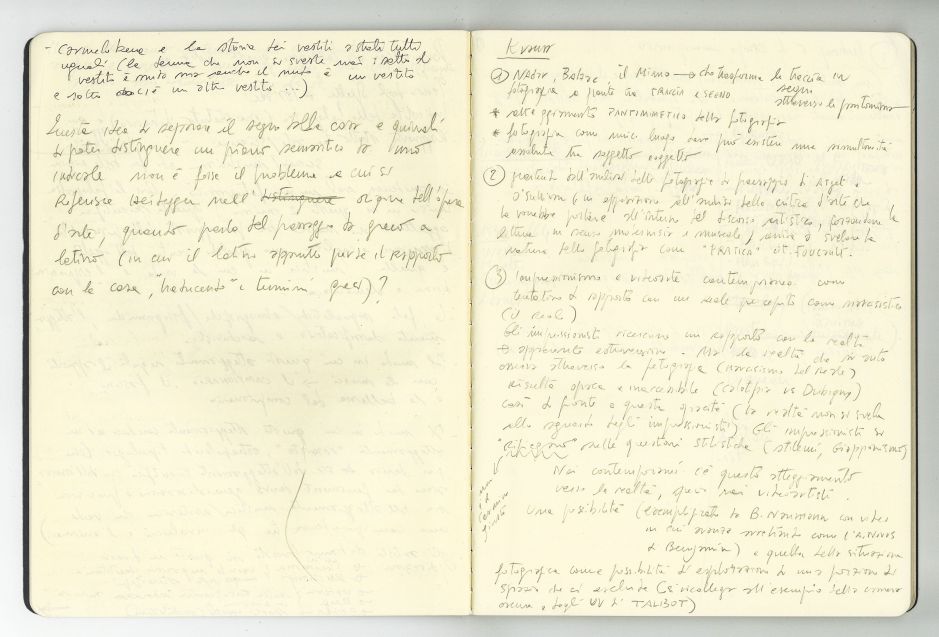 - Carmelo Bene e la storia dei vestiti astrali tutti
uguali (la donna che non si sveste mai: sotto il
vestito è nuda ma anche il nudo è un vestito
e sotto c'è un altro vestito ...)
Questa idea di separare il segno dalla cosa e quindi
di poter distinguere un piano semantico da uno
non è forse il problema a cui si
riferisce Heidegger nell' distinguere origine dell'opera
d'arte, quando parla del passaggio da greco a
latino (in cui il latino appunto perde il rapporto
con la cosa, "traducendo" i termini greci)?
Krauss
① Nadar, Balzac il Mimo → che trasforma la traccia in
segni
fotografia a ponte tra TRACCIA e SEGNO
attraverso la pantomima
* atteggiamento ANTIMIMETICO della fotografia
* fotografia come unico luogo dove può esistere una simultaneità
assoluta tra soggetto oggetto
② partendo dall'analisi delle fotografie di paesaggio di Atget,
O'Sullivan in opposizione all'analisi della critica d'arte che
la vorrebbe portare all'interno del discorso artistico, forzandone la
lettura in senso modernista e museale, arriva a svelare la
natura della fotografia come "PRATICA" cit. FOUCAULT.
③ Impressionismo e videoarte contemporanea come
tentativo di rapporto con un reale percepito come narcisistico
(il reale)
Gli impressionisti ricercano un rapporto con la realtà
apparente estroversione. Ma la realtà che si
attraverso la fotografia (narcisismo del reale)
risulta opaca e inaccessibile (calotipia vs Dubigny)
così di fronte a questa opacità (la realtà non si svela
allo sguardo degli impressionisti) Gli impressionisti si
"ripiegano" sulle questioni stilistiche (stilemi, Giapponismo)
Nei contemporanei c'è questo atteggiamento
verso la realtà, quasi nei videoartisti.
una possibilità (esemplificata da B. Naumann con video
in cui avanza arretrando come l'A. NOVUS
di Benjamin) e quella della situazione
fotografica come possibilità di esplorazione di una porzione di
spazio che ci esclude (si ricollega all'esempio della camera
oscura e degli UV di TALBOT)